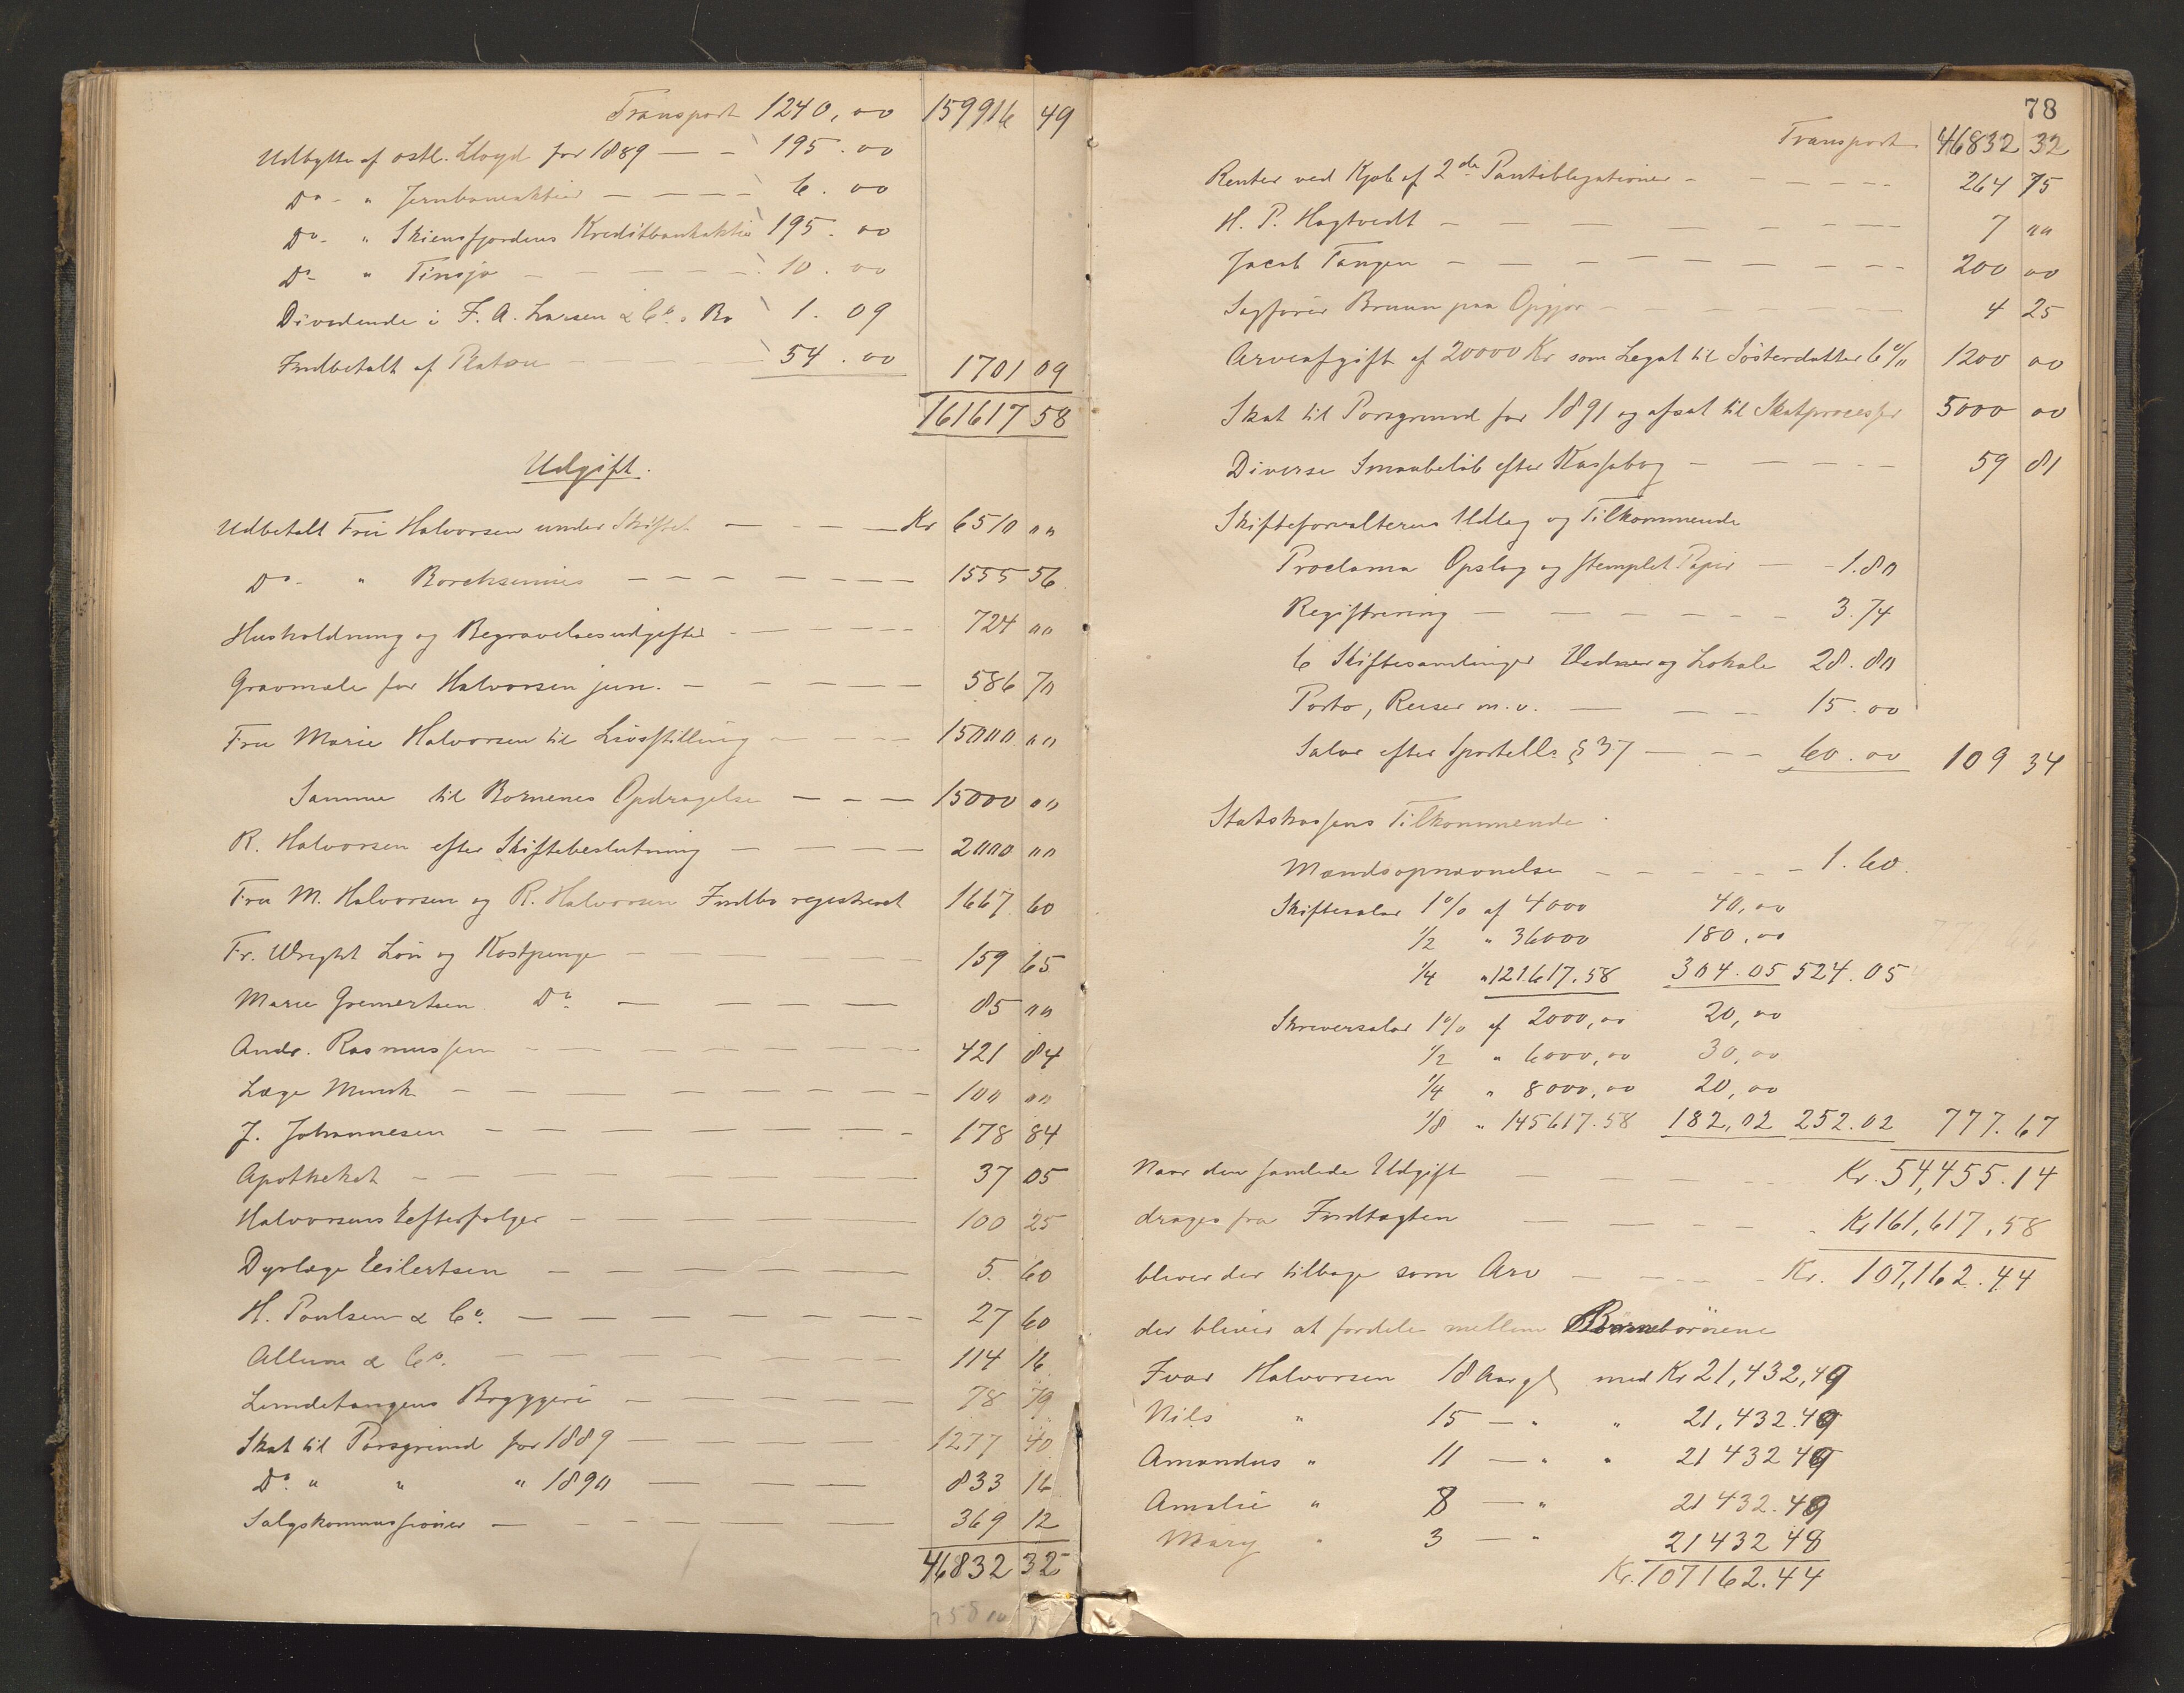 Transport 1240,00 159916 49
Udbytte af østl. Lloyd for 1889 — - 195.00
Do - " Jernbaneaktier — — — — 6.00
Do - " Skiensfjordens Kreditbankaktie 195.00
Do " Tinsjø — — — — — 10.00
Dividende i F. A. Larsen & Co.s Bo 1.09
Indbetalt af Platou — — — — 54.00 1701 09
161617 58
Udgift.
Udbetalt Fru Halvorsen under Skiftet — — — Kr 6510 00
Do - " Borchsenius — — — — — — 1555 56
Husholdning og Begravelsesudgifter — — — — 724 00
Gravmæle for Halvorsen jun. — — — — — 586 70
Fru Marie Halvorsen til Livsstilling — — — — 15000 00
Samme til Børnenes Opdragelse — — — 15000 00
R. Halvorsen efter Skiftebeslutning — — — — 2000 00
Fru M. Halvorsen og R. Halvorsen Indbo registreret 1667 60
Fr. Wright Løn og Kostpenge — — — — 159 65
Marie Gremertsen Do — — — — 85 00
Andr. Rasmussen — — — — — — 421 84
Læge Munch — — — — — — — 100 00
J. Johannesen — — — — — — — 178 84
Apotheket — — — — — — — 37 05
Halvorsens Eefterfølger — — — — — 100 25
Dyrlæge Eilertsen — — — — — — 5. 60
H. Poulsen & Co. — — — — — — — 27 60
Allum & Co. — — — — — — — 114 16
Lundetangens Bryggeri — — — — — 78 79
Skat til Porsgrund for 1889 — — — — 1277 40
Do. " " " 1890 — — — 833 16
Salgskommissioner — — — — — — 369 12
46832 32
78
Transport 46832 32
Renter ved Kjøb af 2de Pantobligationer — — — — — 264 75
H. P. Hagtvedt — — — — — — — — 7 00
Jacob Tangen — — — — — — — — 200 00
Sagfører Bruun paa Opgjør — — — — — — 4 25
Arveafgift af 20000 Kr som Legat til Søsterdatter 6% 1200 00
Skat til Porsgrund for 1891 og afsat til Skatproces for 5000 00
Diverse Smaabeløb efter Kassabog — — — — — 59 81
Skifteforvalterens Udlæg og Tilkommende
Proclama Opslag og stemplet Papir — - 1.80
Registrering — — — — — — 3.74
6 Skiftesamlinger Vidner og Lokale 28.80
Porto, Reiser m.v. — — — 15.00
Salær efter Sportelln § 37 — — — 60.00 109 34
Statskassens Tilkommende
Mændsopnævnelse — — — — — 1.60.
Skiftesalær 1% af 4000 40,00
1/2 " 36000 180,00
1/4 " 121617.58 304.05 524.05
Skriversalær 1% af 2000,00 20,00
1/2 " 6000,00 30,00
1/4 " 8000,00 20,00
1/8 " 145617.58 182,02 252.02 777.67
Naar den samlede Udgift — — — — Kr. 54,455.14
drages fra Indtægten — — — — — Kr 161,617,58
bliver der tilbage som Arv — — — — Kr. 107,162.44
der bliver at fordele mellem Børnebørnene
Ivar Halvorsen 18 Aar gl med Kr 21,432,49
Nils " 15 — " " 21,432.49
Amandus " 11 — " " 21432 49
Amalie " 8 — " 21432.49
Mary " 3 — " 21432 48
Kr. 107162.44